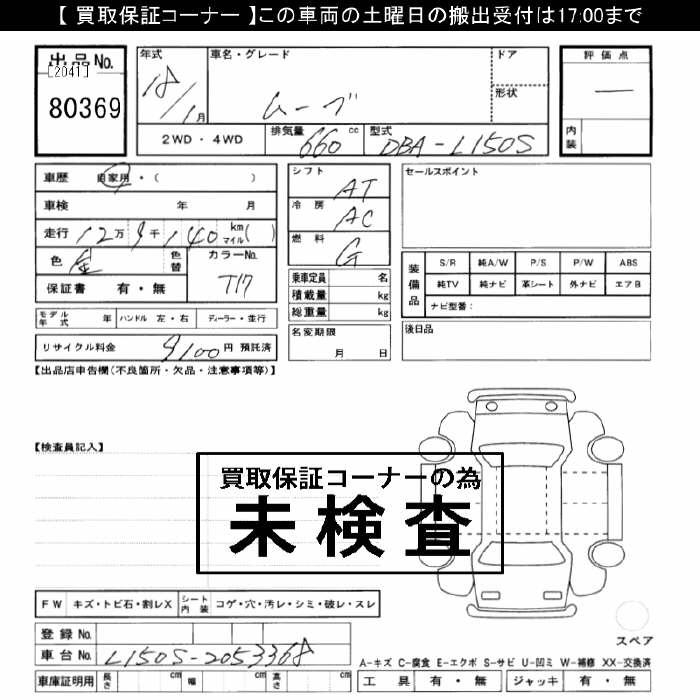 【 買取保証コーナー 】この車両の土曜日の搬出受付は17:00まで
出品No.
[2041]
80369
年式
18/1月
車名・グレード
ムーブ
ドア
形状
評価点
―
内装
2WD・4WD
排気量 660 cc
型式 DBA-L150S
車歴 自家用・( )
車検 年 月
走行 12万9千140 km マイル( )
色 金 色替
カラーNo. T17
保証書 有・無
モデル年式 年 ハンドル 左・右 ディーラー・並行
リサイクル料金 9100円 預託済
シフト AT
冷房 AC
燃料 G
乗車定員 名
積載量 kg
総重量 kg
名変期限
月 日
セールスポイント
装備品
S/R 純A/W P/S P/W ABS
純TV 純ナビ 革シート 外ナビ エアB
ナビ型番:
後日品
【出品店申告欄(不良箇所・欠品・注意事項等)】
【検査員記入】
買取保証コーナーの為
未検査
FW キズ・トビ石・割レX シート内装 コゲ・穴・汚レ・シミ・破レ・スレ
登録No.
車台No. L150S-2053368
車庫証明用 長さ cm 幅 cm 高さ cm
スペア
A-キズ C-腐食 E-エクボ S-サビ U-凹ミ W-補修 XX-交換済
工具 有・無 ジャッキ 有・無